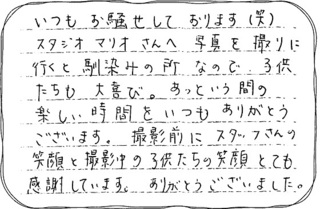 いつも お騒せして おります(笑)
スタジオ マリオ さんへ 写真 を 撮りに
行くと 馴染みの 所 なので 子供
たちも 大喜び。あっという 間の
楽しい 時間を いつも ありがとう
ございます。 撮影前に スタッフさんの
笑顔と 撮影中の 子供たちの 笑顔 とても
感謝しています。 ありがとう ございました。